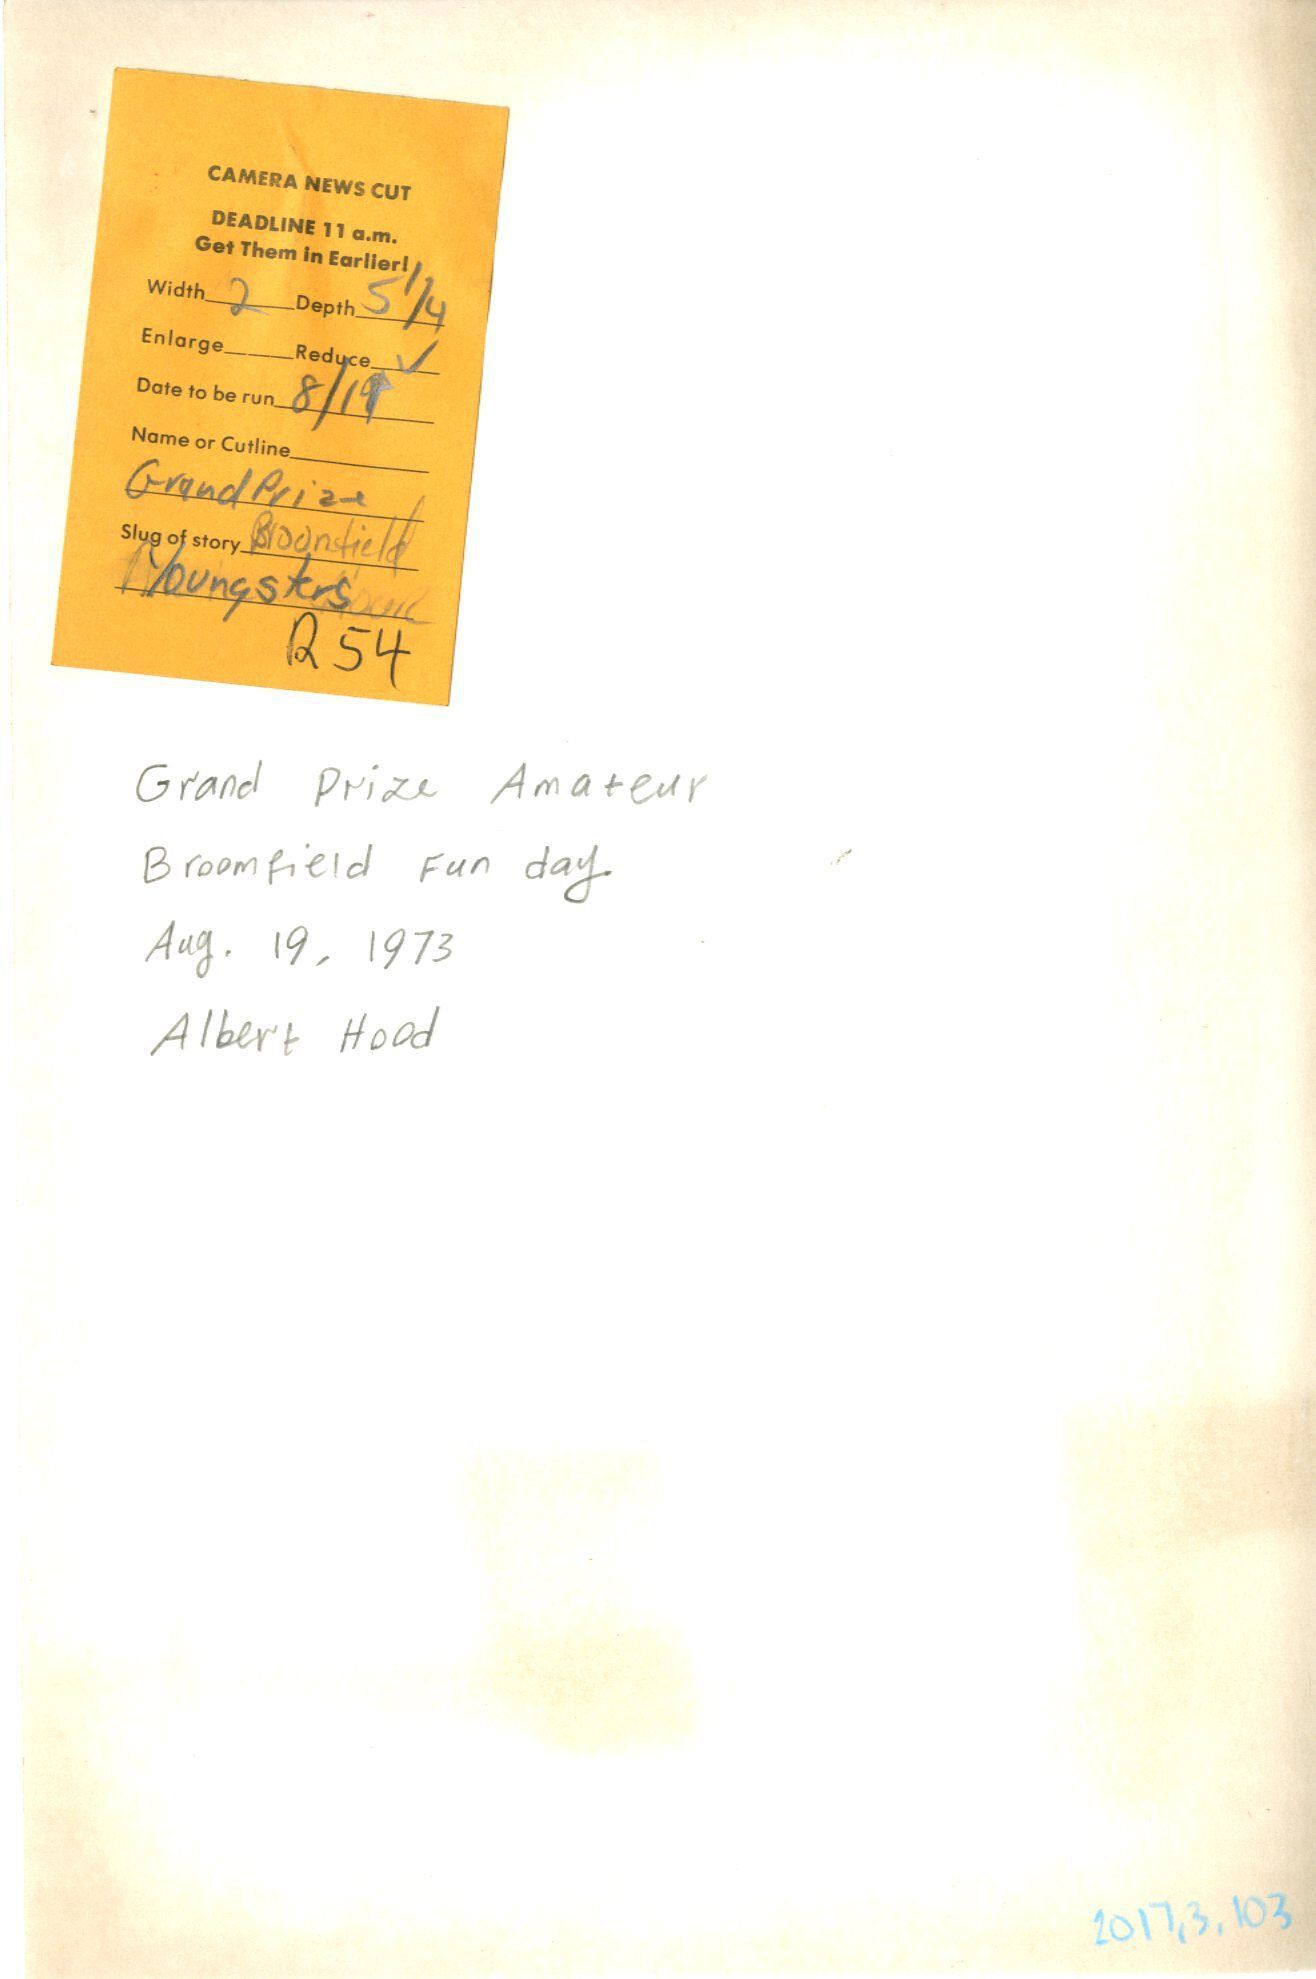 CAMERA NEWS CUT
DEADLINE 11 a.m.
Get Them in Earlier!
Width 2 Depth 5 1/4
Enlarge Reduce ✓
Date to be run 8/19
Name or Cutline
Grand Prize
Slug of story Broomfield
Youngsters
R 54
Grand Prize Amateur
Broomfield Fun day.
Aug. 19, 1973
Albert Hood
2017.3.103